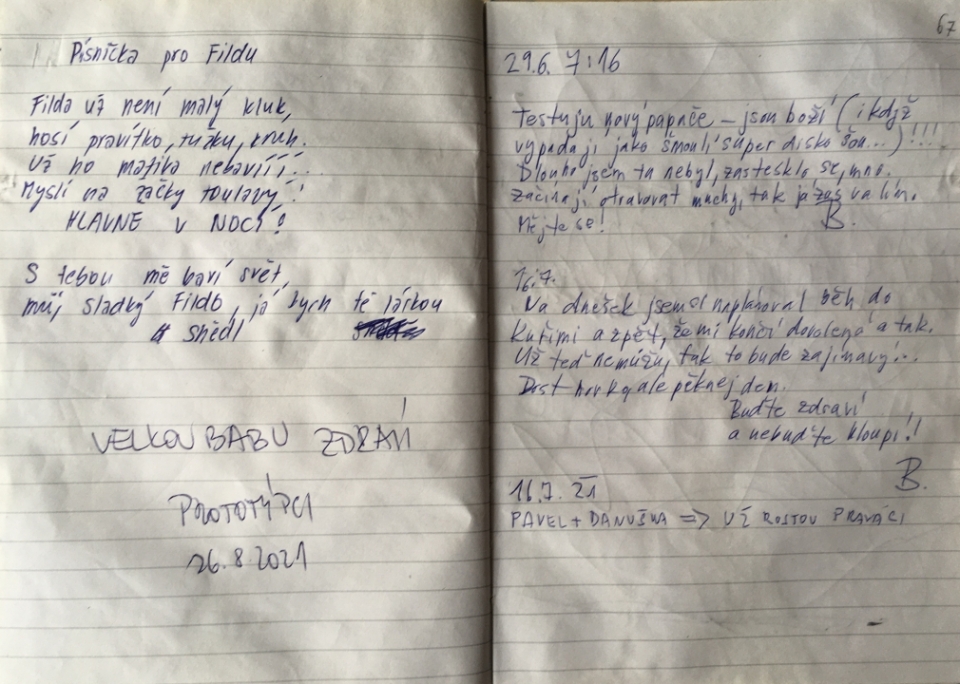 Písnička pro Fildu
Filda už není malý kluk,
nosí pravítko, tužku, kruh.
Už ho matika nebavííí...
Myslí na žáčky toulavý!
HLAVNE V NOCI!
S tebou mě baví svět,
můj sladký Fildo, já bych tě láskou
snědl
VELKOU BABU ZDRAVÍ
PROTOTÝPCI
26.8.2021
67
29.6. 7:16
Testuju nový papuče – jsou boží (i když
vypadají jako šmoulí super disko šou...)!!!
Dlouho jsem tu nebyl, zastesklo se mně.
Začínají otravovat mouchy, tak já zas valím.
Mějte se! B.
16.7.
Na dnešek jsem si naplánoval běh do
Kuřimi a zpět, že mi končí dovolená a tak.
Už teď nemůžu, tak to bude zajímavý...
Dost horký ale pěknej den.
Buďte zdraví
a nebuďte hloupí!!
B.
16.7. 21
PAVEL + DANUŠKA => UŽ ROSTOU PRAVÁCI